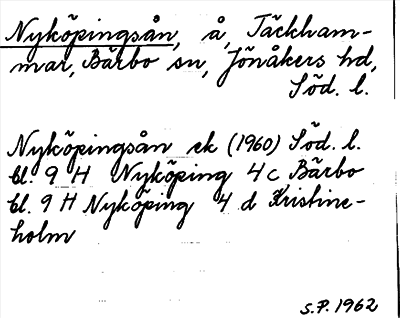 Nyköpingsån, å, Täckham-
mar, Bärbo sn, Jönåkers hd,
Söd. l.
Nyköpingsån ek (1960) Söd. l.
bl. 9 H Nyköping 4 c Bärbo
bl. 9 H Nyköping 4 d Kristine-
holm
S.P. 1962